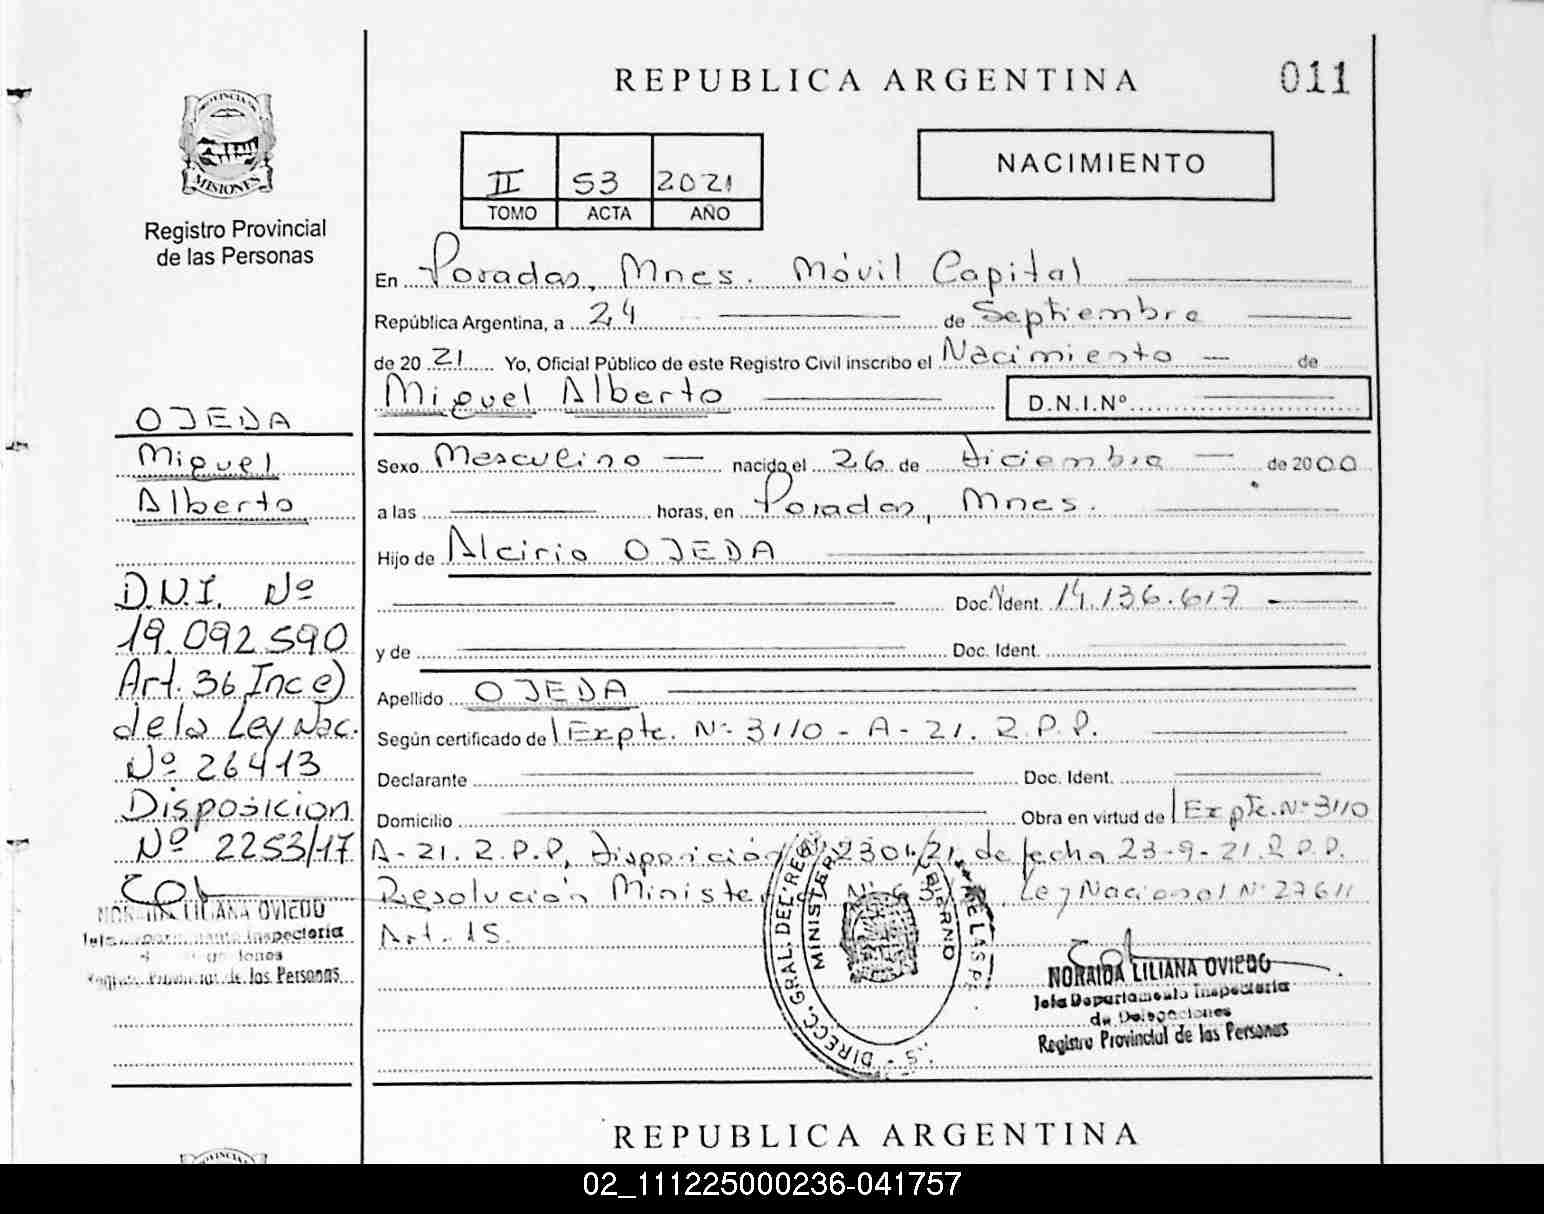 REPUBLICA ARGENTINA
011
PROVINCIA DE
MISIONES
Registro Provincial
de las Personas
II 53 2021
TOMO ACTA AÑO
NACIMIENTO
En Posadas, Mnes. Móvil Capital
República Argentina, a 24 de Septiembre
de 20 21 Yo, Oficial Público de este Registro Civil inscribo el Nacimiento de
Miguel Alberto
D.N.I.Nº
Sexo Masculino nacido el 26 de diciembre de 2000
a las horas, en Posadas, Mnes.
Hijo de Alcirio OJEDA
Doc. Ident. 14.136.617
y de Doc. Ident.
Apellido OJEDA
Según certificado de Expte. Nº 3110 - A - 21. R.P.P.
Declarante Doc. Ident.
Domicilio Obra en virtud de Expte. Nº 3110
A-21. R.P.P, disposición 2301/21, de fecha 23-9-21. R.P.P.
Resolución Ley Nacional Nº 27611
Art. 15.
OJEDA
Miguel
Alberto
D.N.I. Nº
19.092.590
Art. 36 Inc e)
de la Ley Nac.
Nº 26413
Disposicion
Nº 2253/17
NORAIDA LILIANA OVIEDO
Jefa Departamento Inspectoria
de Delegaciones
Registro Provincial de las Personas
DIRECC. GRAL. DEL REG
MINISTER
NORAIDA LILIANA OVIEDO
Jefa Departamento Inspectoria
de Delegaciones
Registro Provincial de las Personas
REPUBLICA ARGENTINA
02_111225000236-041757